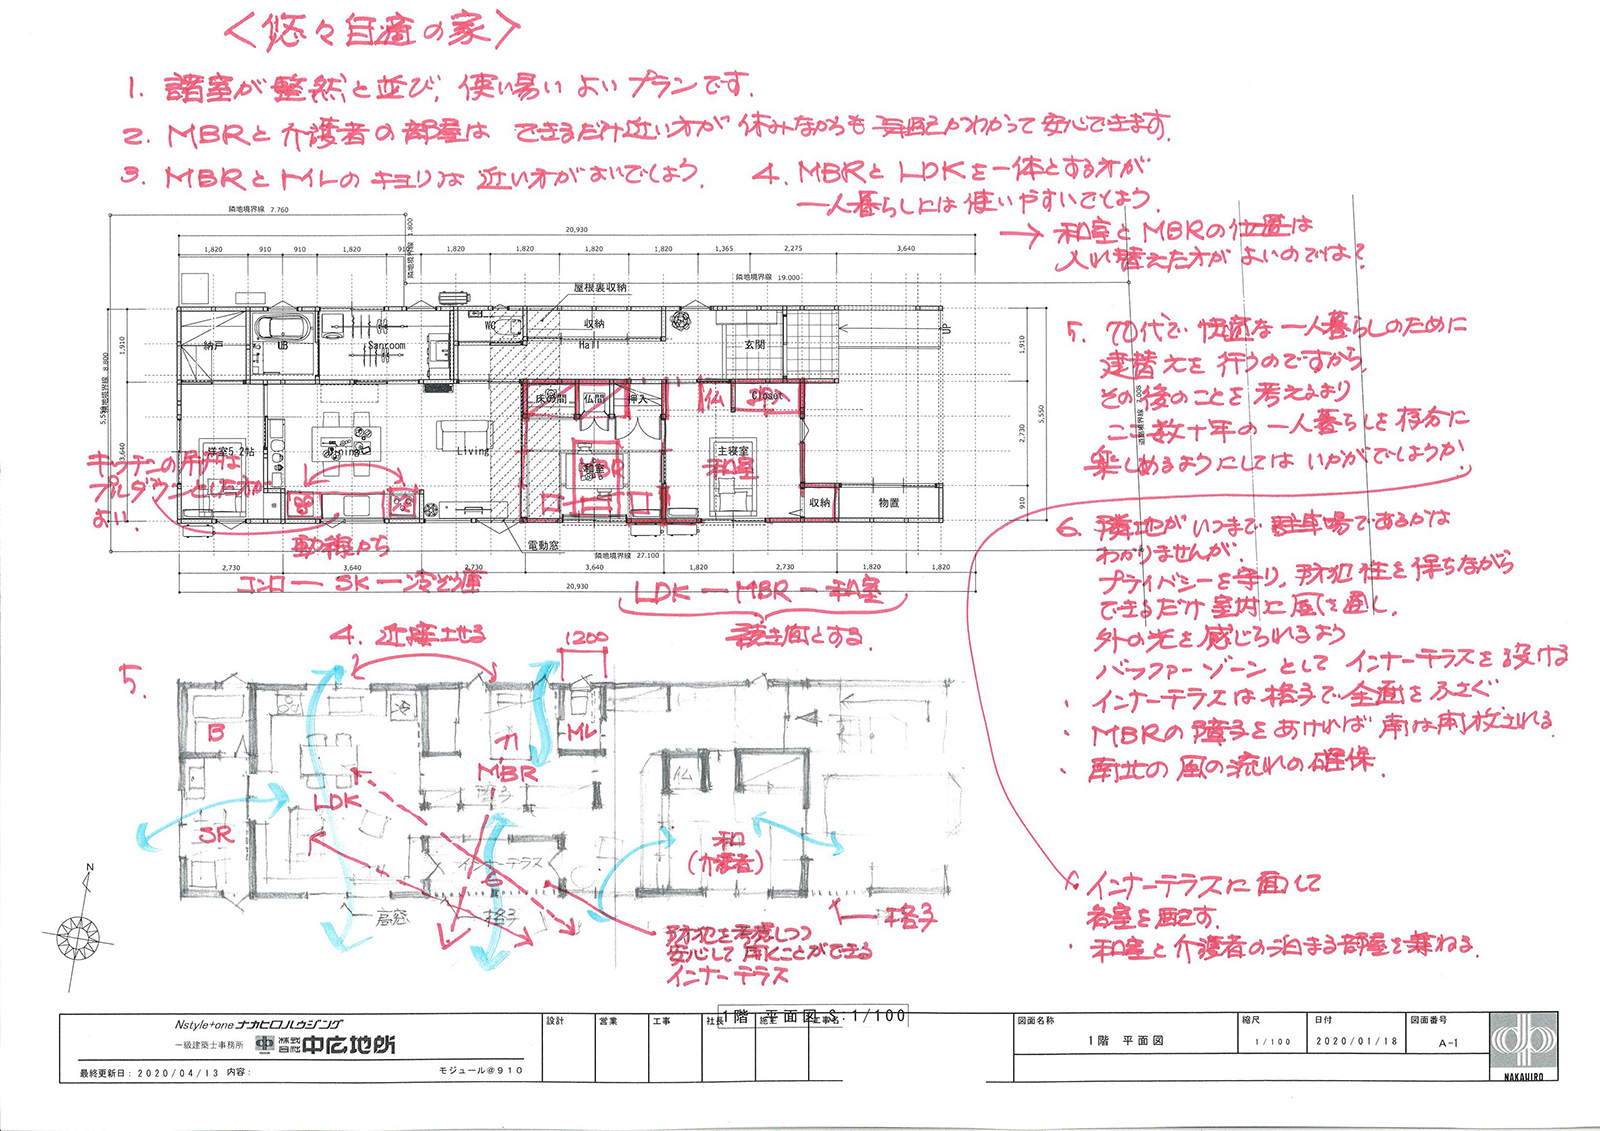 〈悠々自適の家〉
1. 諸室が整然と並び、使い易いよいプランです。
2. MBRと介護者の部屋は できるだけ近い方が 休みながらも気配がわかって安心できます。
3. MBRとトイレのキョリは 近い方がよいでしょう。
4. MBRとLDKを一体とする方が
一人暮らしには使いやすいでしょう。
→ 和室とMBRの位置は
入れ替えた方がよいのでは?
隣地境界線 7.760
1.800
隣地境界線
20,930
1,820 910 910 1,820 910 1,820 1,820 1,820 1,820 1,365 2,275 3,640
隣地境界線 19.000
屋根裏収納
納戸 UB Sanroom WC 収納 Hall 玄関 UP
1,910
5,550
2,730
910
1,910
3,660
隣地境界線 8.800
床の間 仏間 押入 仏 押入 Closet
洋室5.2帖 Dining Living 和室 MBR 主寝室 和室
収納 物置
電動窓
隣地境界線 27.100
2,730 3,640 2,730 3,640 2,730 3,640
20,930
キッチンの吊戸は
プルダウンとした方が
よい.
動線から
コンロ ー SK ー 冷ぞう庫
LDK ー MBR ー 和室
続き間とする.
5. 70代で快適な一人暮らしのために
建替えを行うのですから,
その後のことを考えるより
ここ数十年の一人暮らしを存分に
楽しめるようにしては いかがでしょうか.
6. 隣地がいつまで駐車場であるかは
わかりませんが.
プライバシーを守り, 防犯性を保ちながら
できるだけ室内に風を通し,
外の光を感じられるよう
バッファーゾーンとしてインナーテラスを設ける
・ インナーテラスは格子で全面をふさぐ.
・ MBRの障子をあければ南は開放される.
・ 南北の風の流れの確保.
・ インナーテラスに面して
各室を配す.
・ 和室と介護者の泊まる部屋を兼ねる.
4. 近接させる
1200
5.
B LDK SR MBR ML
仏
和
(介護者)
インナーテラス
6
高窓 格子 格子
防犯を考慮しつつ
安心して開くことができる
インナーテラス
N
1階 平面図 S:1/100
Nstyle+one ナカヒロハウジング
一級建築士事務所 株式会社 中広地所
最終更新日: 2020/04/13 内容:
モジュール@910
設計 営業 工事 社長 施主 工事名
図面名称
1階 平面図
縮尺
1/100
日付
2020/01/18
図面番号
A-1
NAKAHIRO